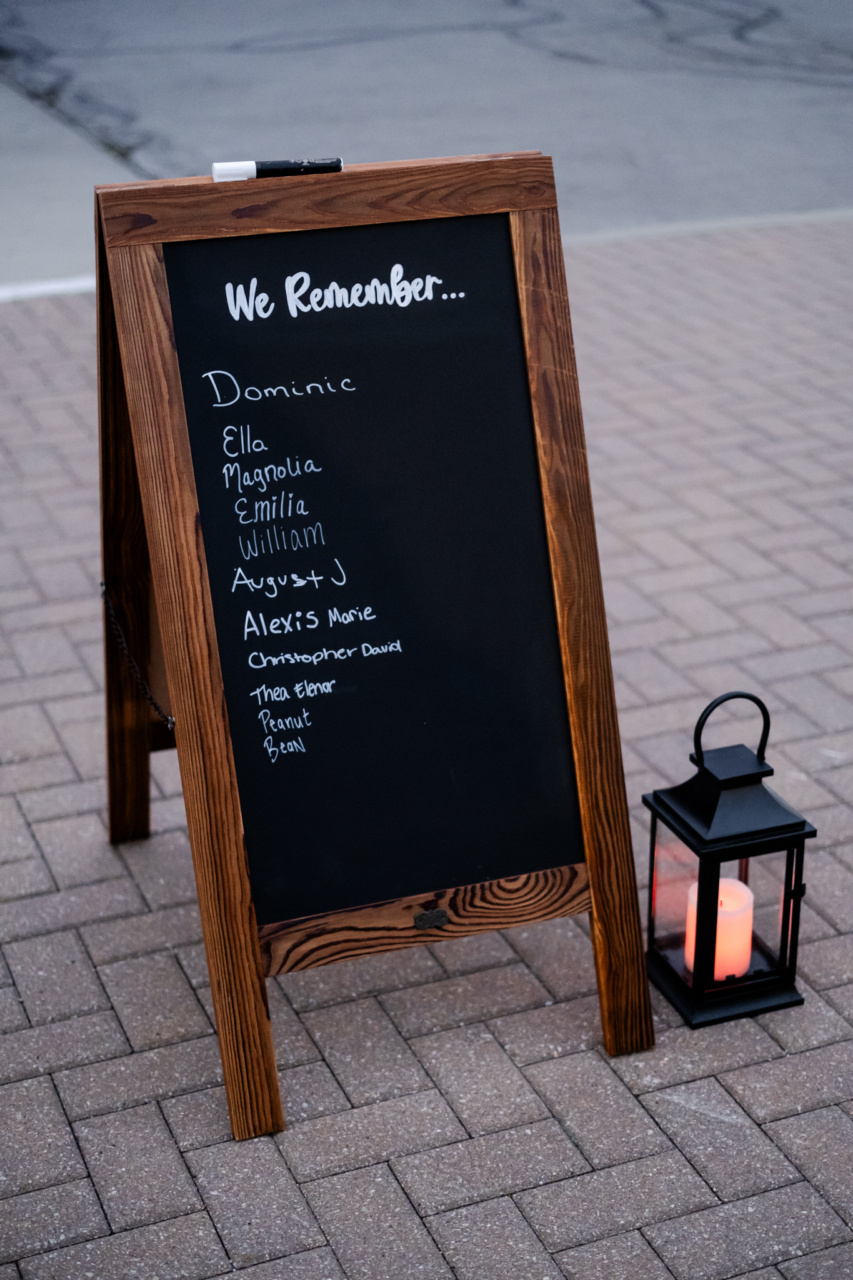 We Remember...
Dominic
Ella
Magnolia
Emilia
William
August J
Alexis Marie
Christopher David
Thea Elenor
Peanut
Bean